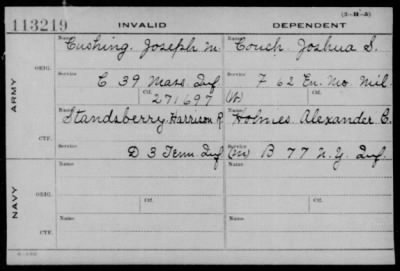 (3-H-5)
113219 INVALID DEPENDENT
Name Name
Cushing, Joseph M. Couch, Joshua S.
ORIG. Service Service
C 39 Mass Inf F 62 En. Mo. Mil.
Ctf. Ctf.
271697 (W)
ARMY
Name Name
Standsberry Harrison R. Holmes Alexander C.
CTF. Service Service
D 3 Tenn Inf (M) B 77 N.Y. Inf.
Name Ctf. Name Ctf.
ORIG.
NAVY
Name Name
CTF.